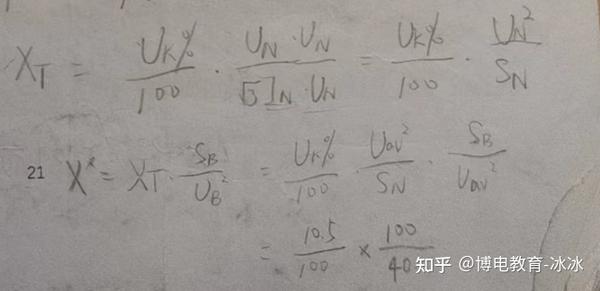 X_T = U_K%/100 · U_N·U_N/√3I_N·U_N = U_K%/100 · U_N²/S_N
21 X* = X_T · S_B/U_B² = U_K%/100 · U_av²/S_N · S_B/U_av²
= 10.5/100 × 100/40
知乎 @博电教育-冰冰